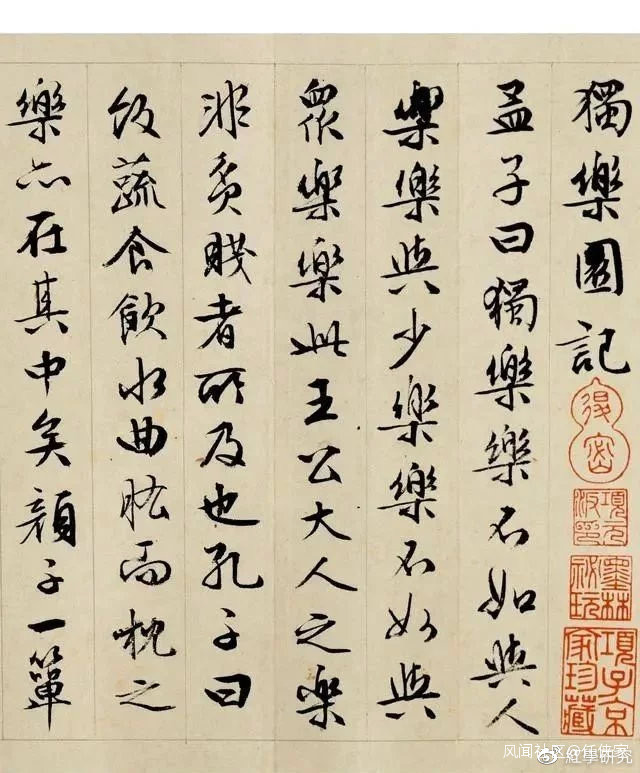 獨樂園記
孟子曰獨樂樂不如與人
樂樂與少樂樂不如與
衆樂樂此王公大人之樂
非貧賤者所及也孔子曰
飯蔬食飲水曲肱而枕之
樂亦在其中矣顏子一簞
退密
項元汴印
墨林祕玩
項子京家珍藏
风闻社区
@紅學研究